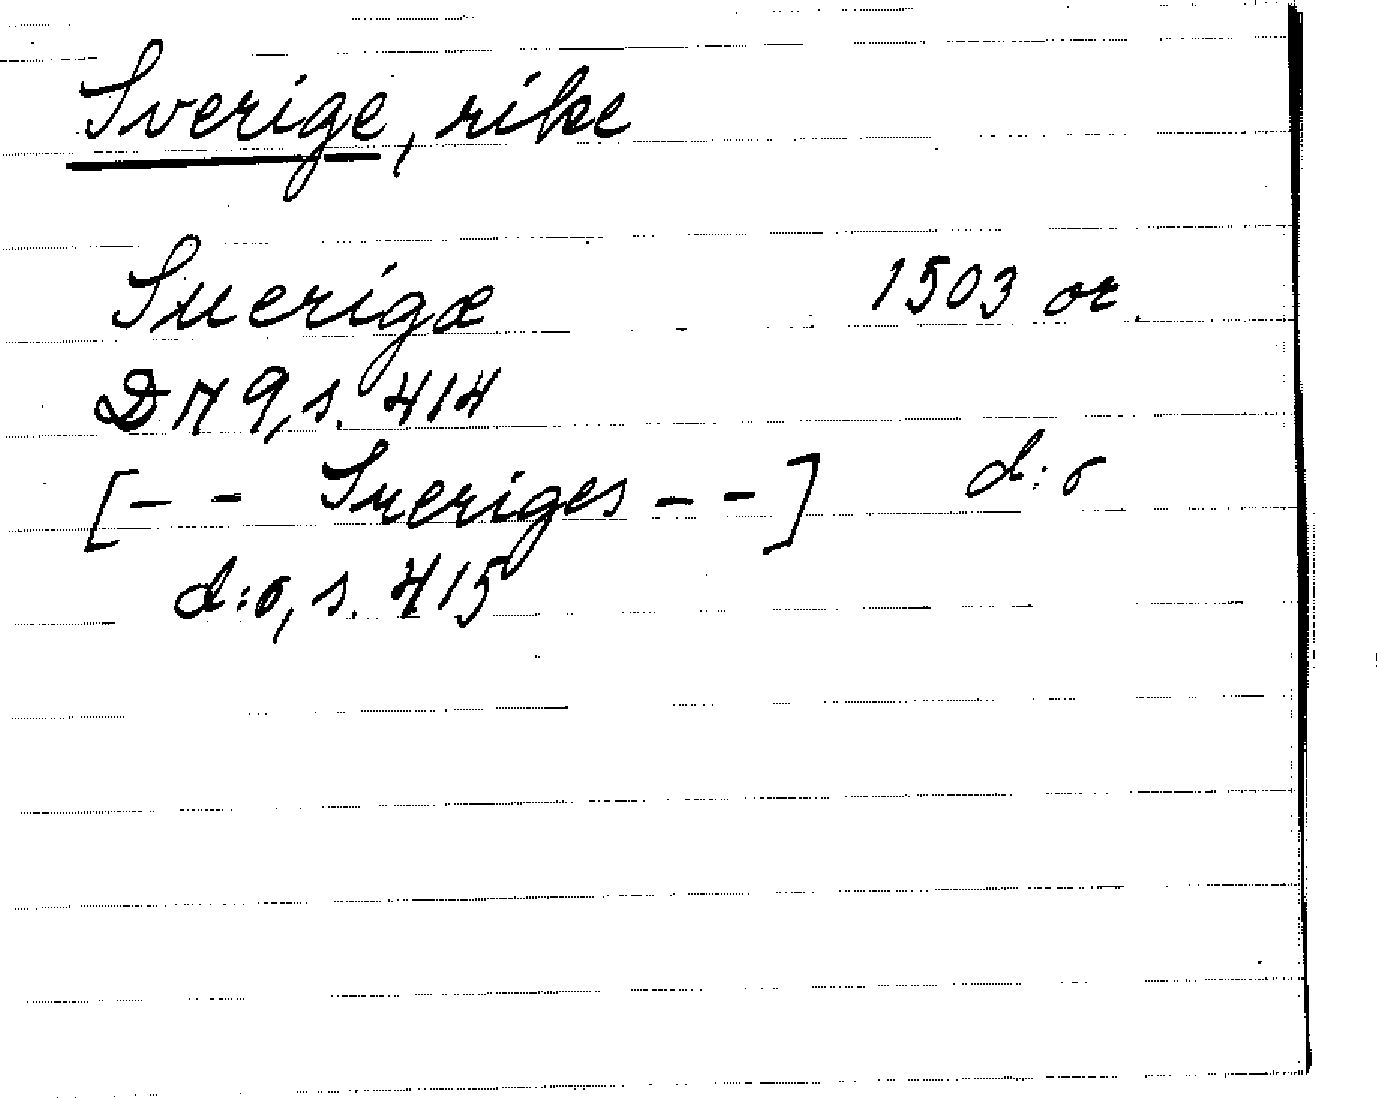 Sverige, rike
Suerigæ 1503 or.
DN 9, s. 414
[- - Sueriges - -] d:o
d:o, s. 415